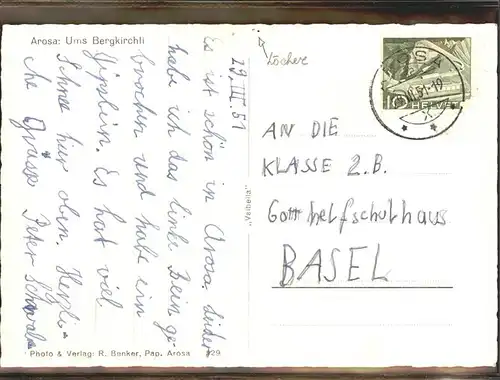 Arosa: Ums Bergkirchli
Löcher
29. III. 51
Es ist schön in Arosa. Leider
habe ich das linke Bein ge-
brochen und habe ein
Gipsbein. Es hat viel
Schnee hier oben. Herzli-
che Grüsse Peter
"Verbella"
AROSA
III.51-19
10 HELVETIA
AN DIE
KLASSE 2.B.
Gotthelfschulhaus
BASEL
Photo & Verlag: R. Banker, Pap. Arosa 729